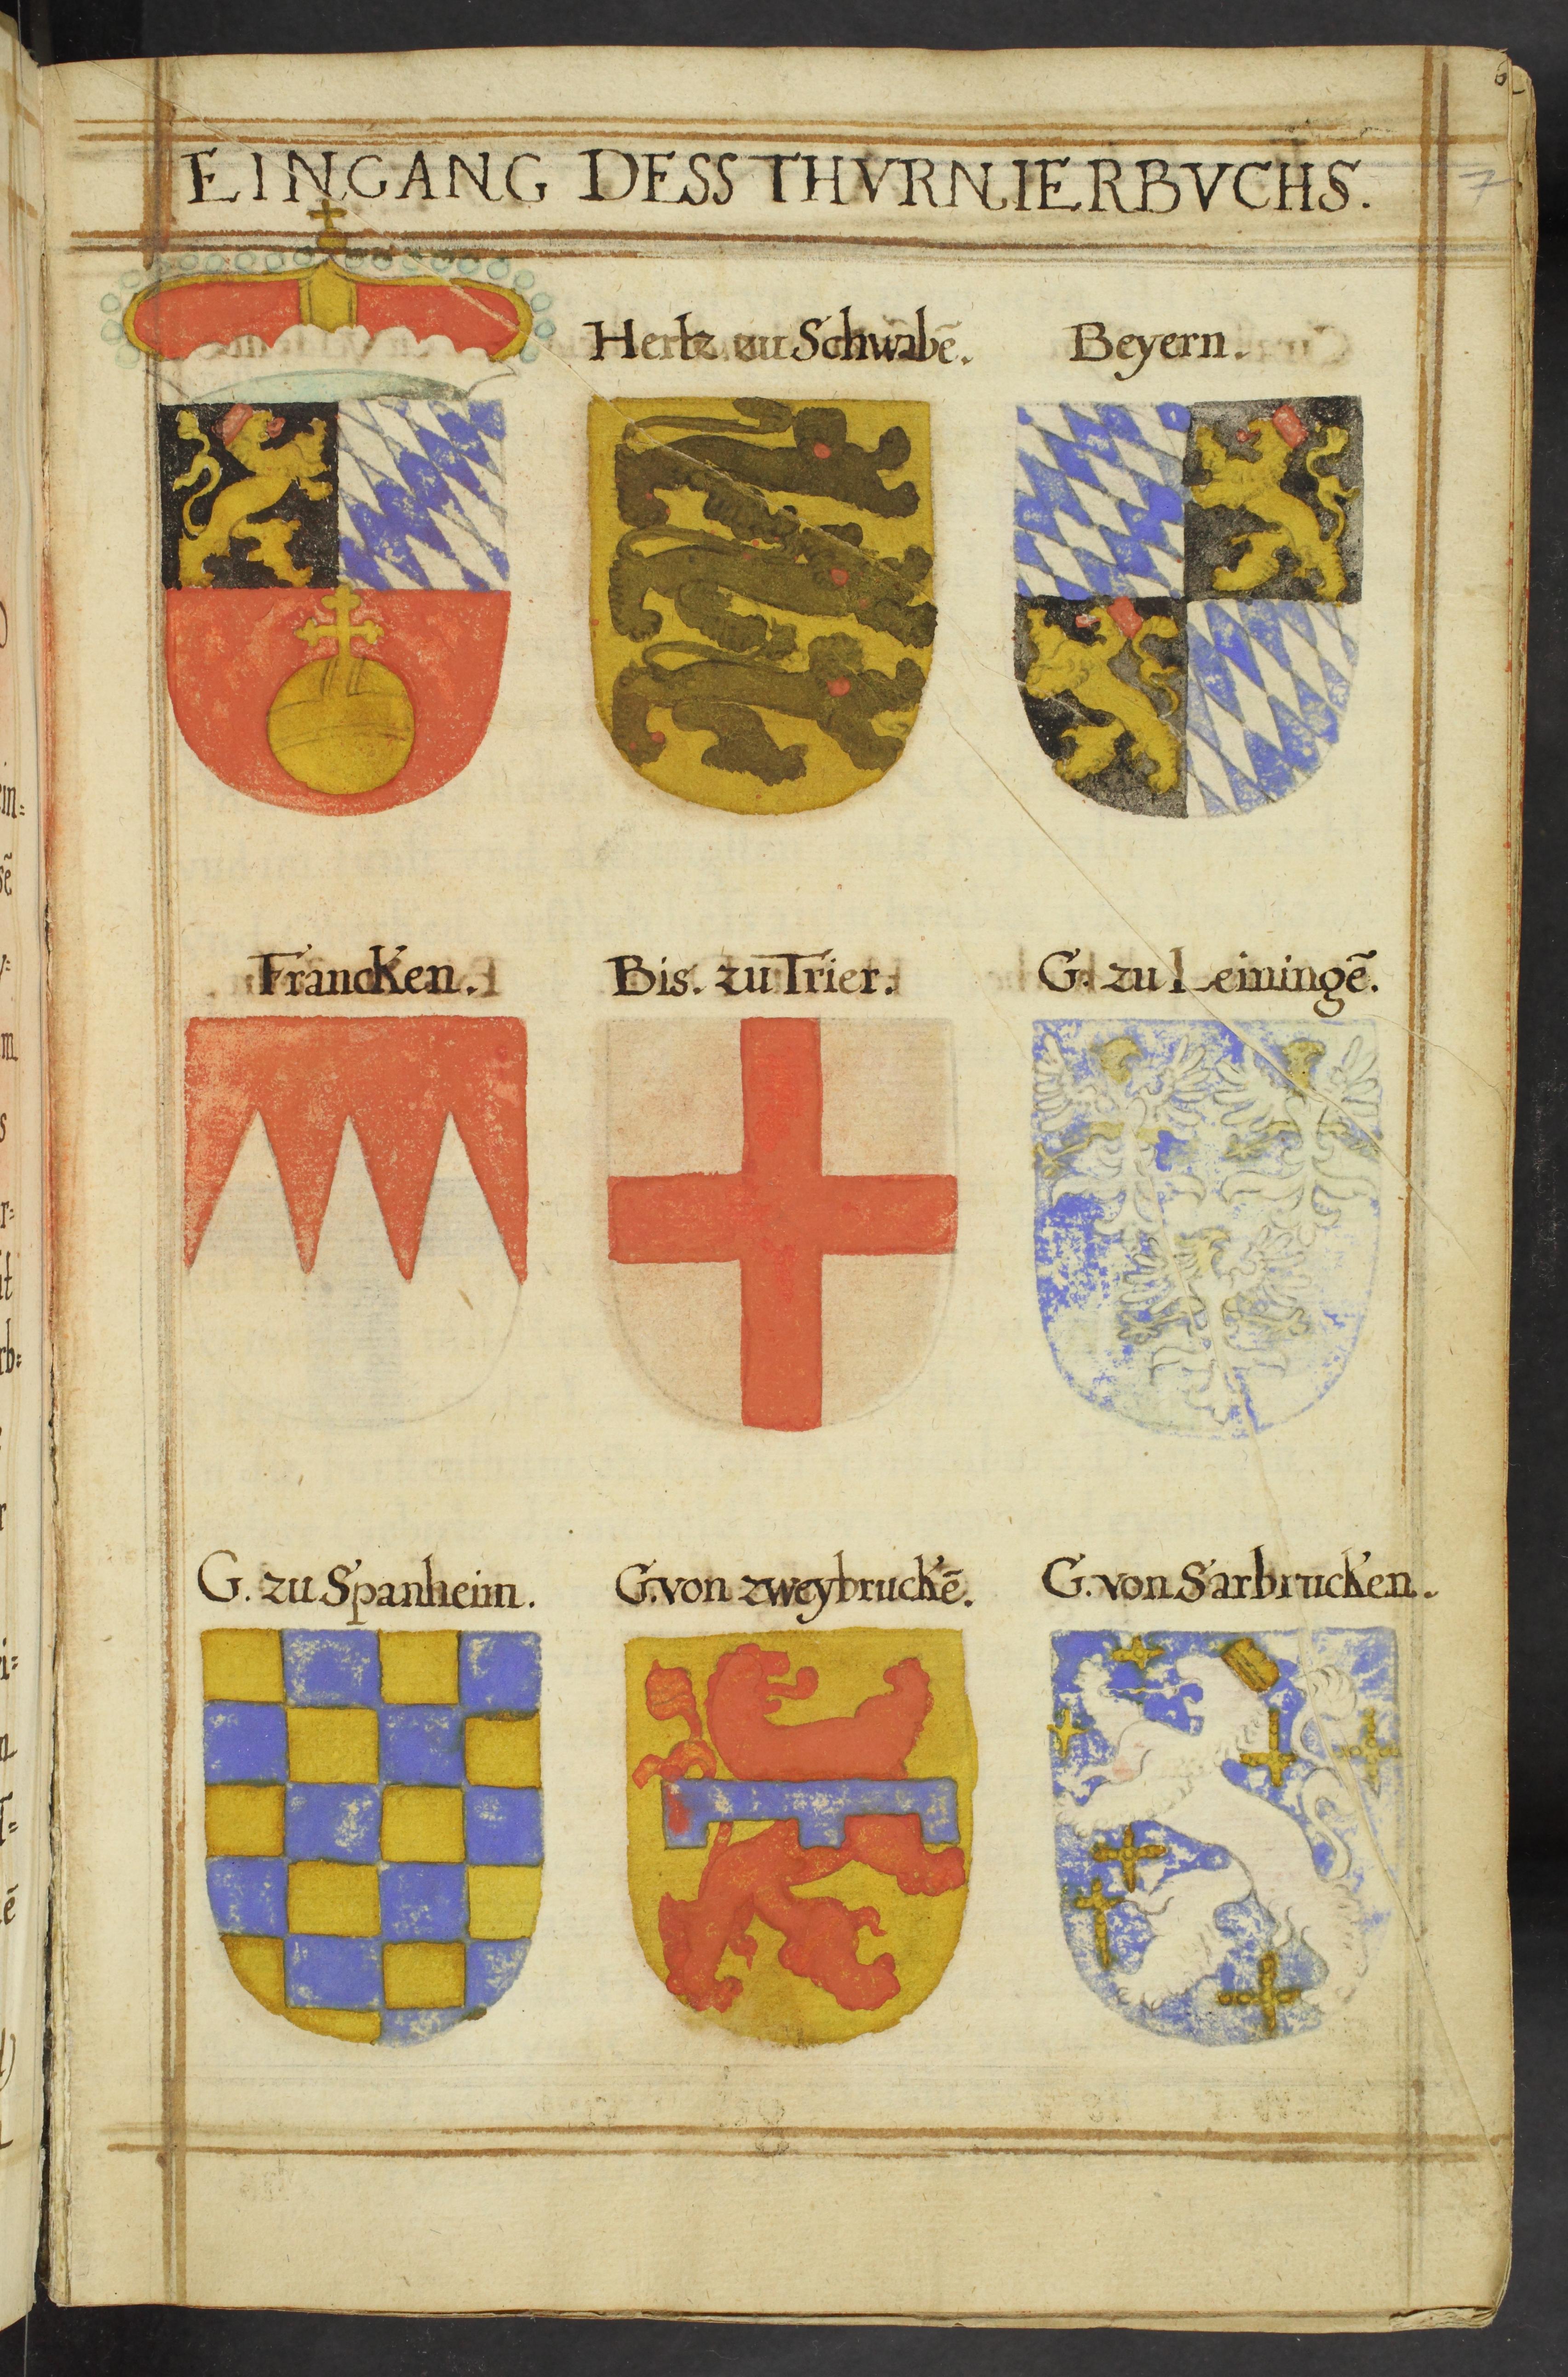 6
EINGANG DESS THVRNIERBVCHS.
7
Hertz zu Schwabē.
Beyern.
Francken.
Bis. zu Trier.
G. zu Leiningē.
G. zu Spanheim.
G. von zweybruckē.
G. von Sarbrucken.